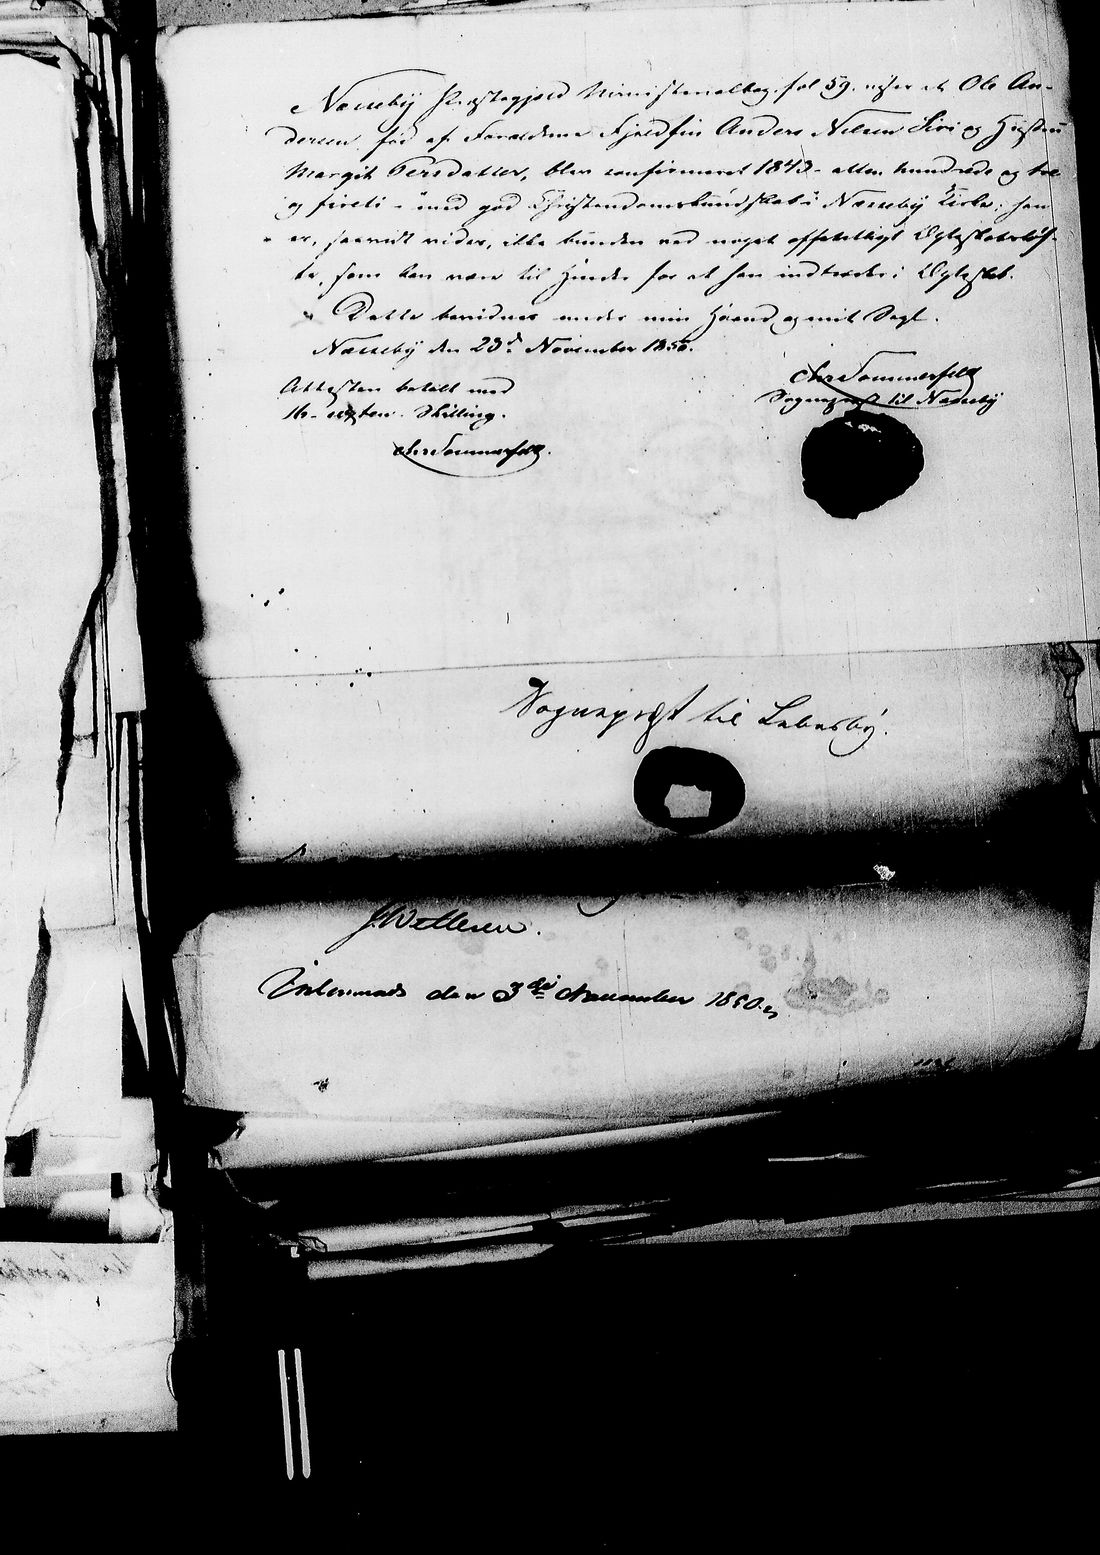 Nesseby Præstegjeld Ministerialbog fol 59. viser at Ole An-
dersen, fød af Forældrene Fjeldfin Anders Nilsen Siri og Hustru
Margit Persdatter, blev confirmeret 1843 - atten hundrede og tre
og fireti - med god Christendomskundskab i Nesseby Kirke; han
er, saavidt vides, ikke bunden ved noget offentligt Ægteskabsløf-
te, som kan være til Hinder for at han indtræder i Ægteskab.
Dette bevidnes under min Haand og mit Segl.
Nesseby den 23de November 1850.
Attesten betalt med
16 - sexten - Skilling.
Chr Sommerfelt
Sogneprest til Nesseby
Chr Sommerfelt.
Sogneprest til Lebesby.
den 3die November 1850.